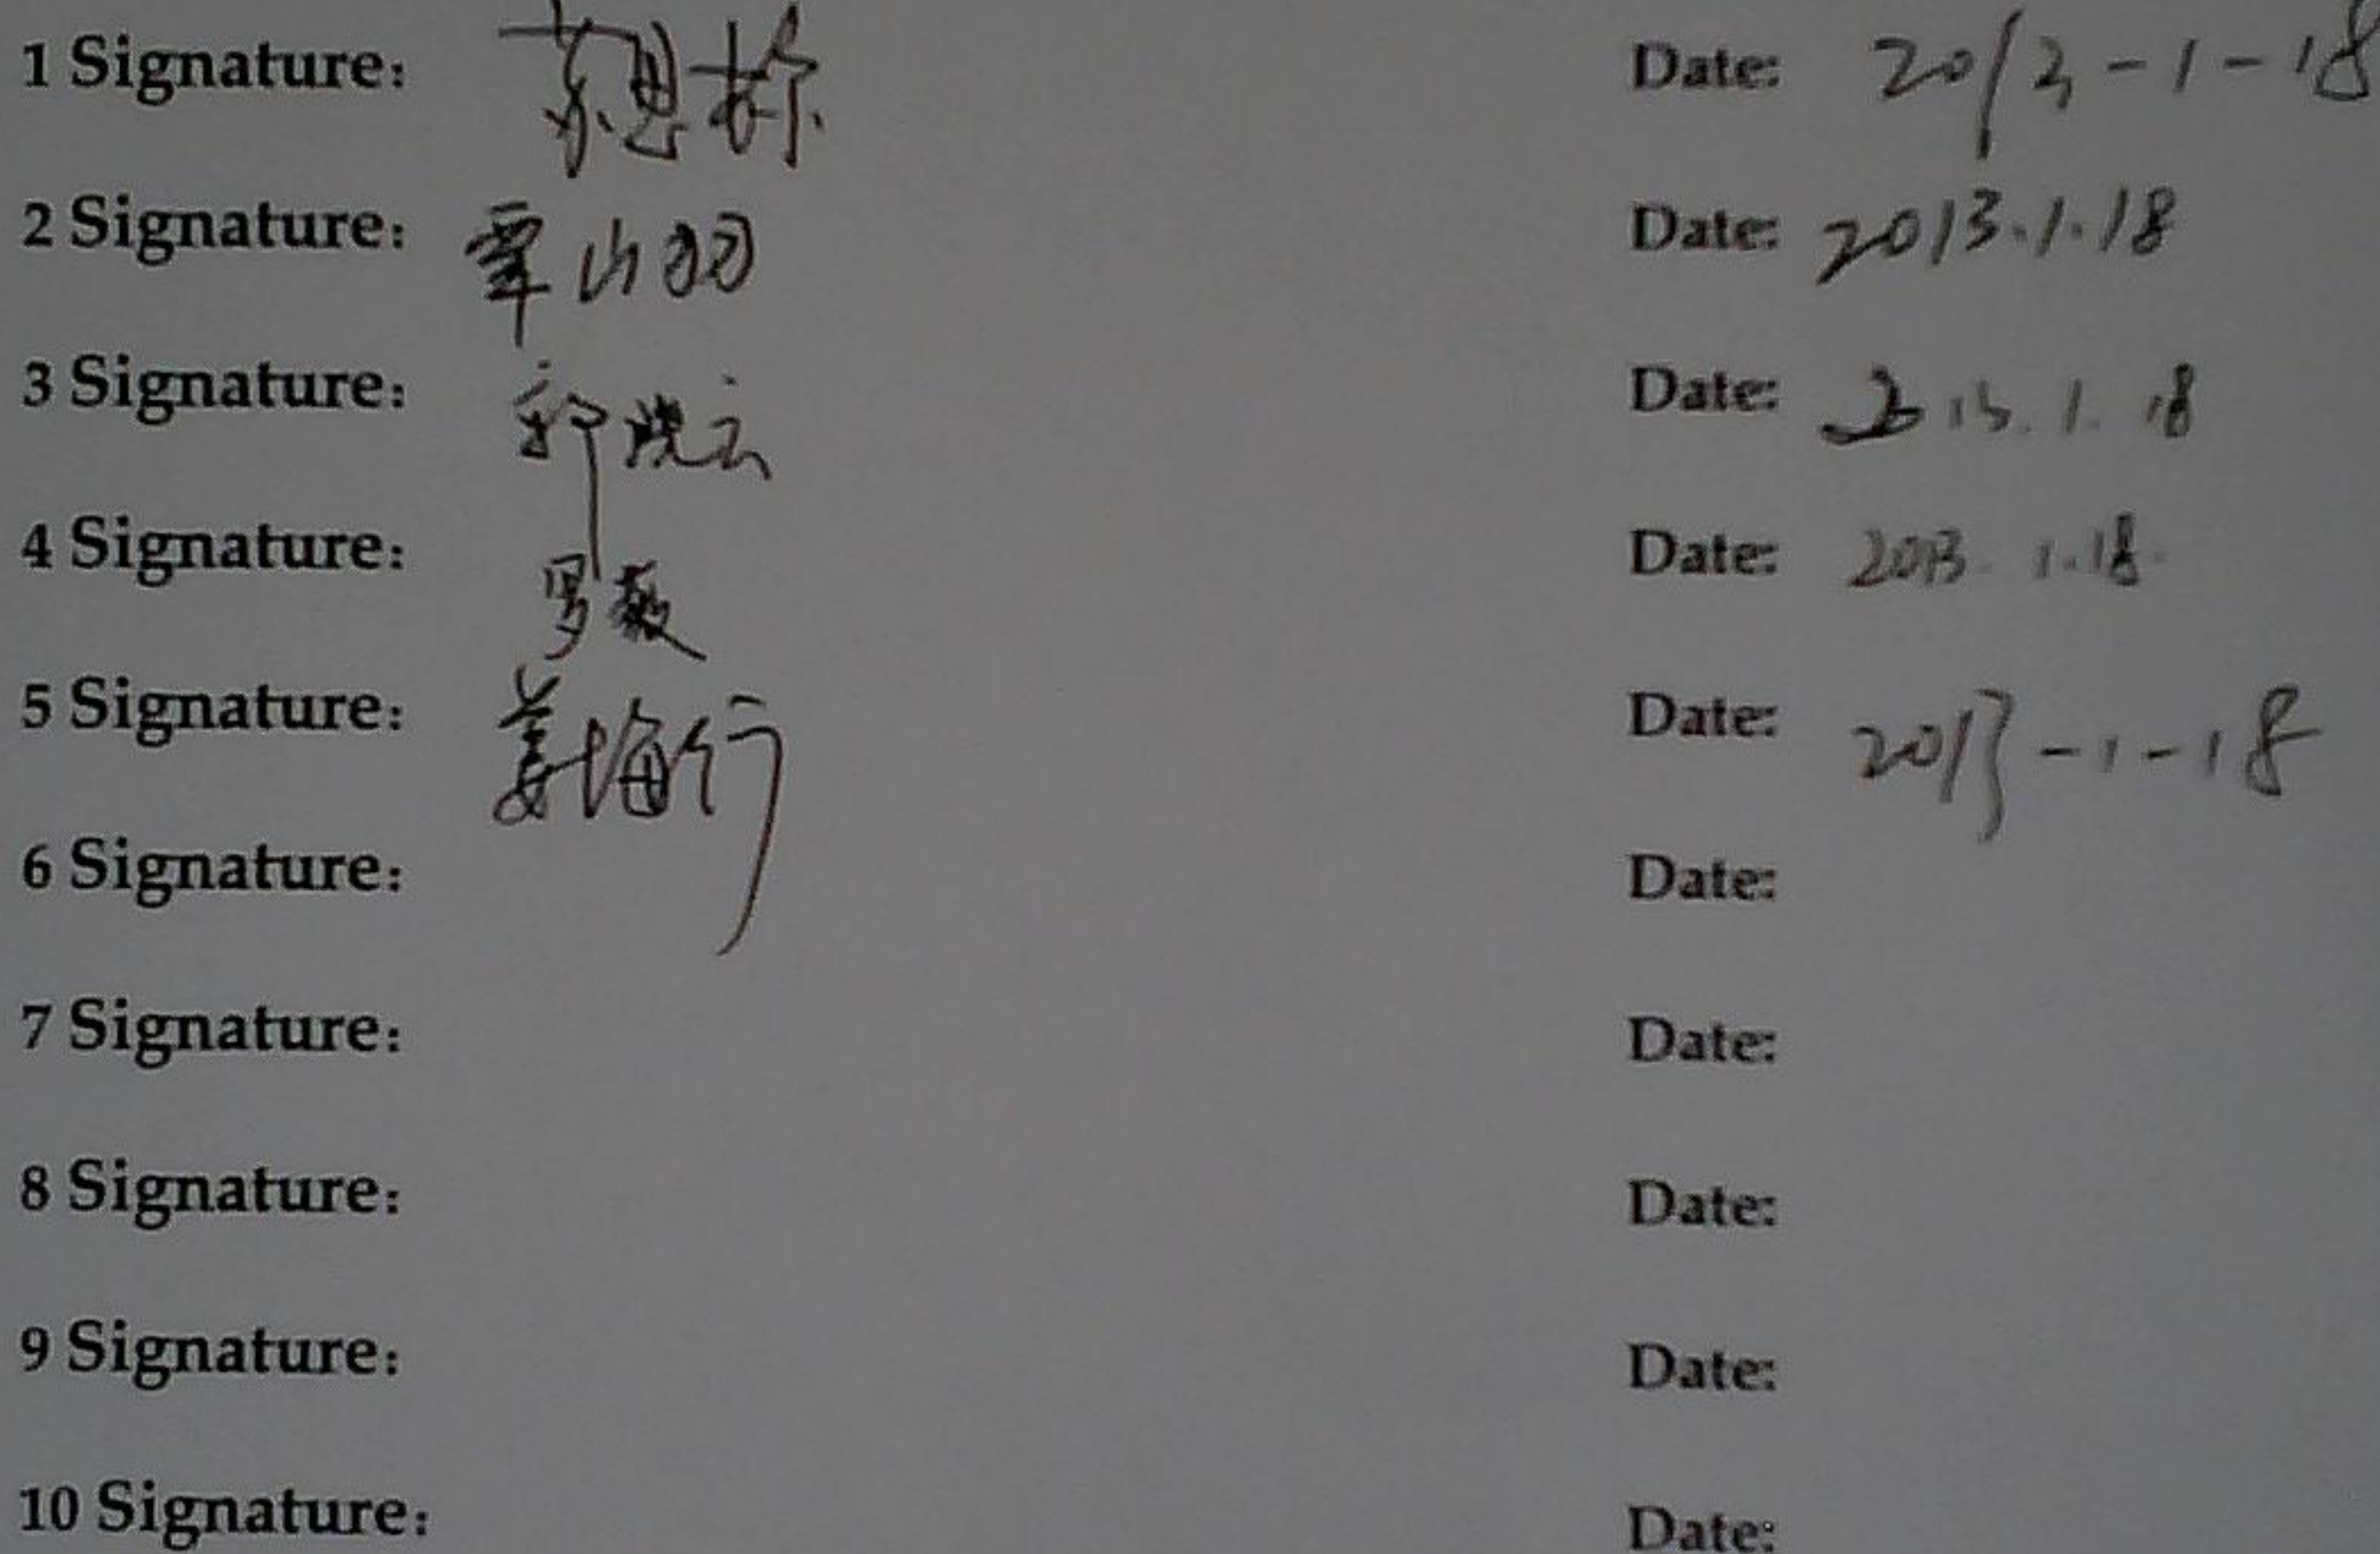 1 Signature: Date: 2013-1-18
2 Signature: 覃山 Date: 2013.1.18
3 Signature: Date: 2013.1.18
4 Signature: Date: 2013.1.18
5 Signature: 姜海行 Date: 2013-1-18
6 Signature: Date:
7 Signature: Date:
8 Signature: Date:
9 Signature: Date:
10 Signature: Date: